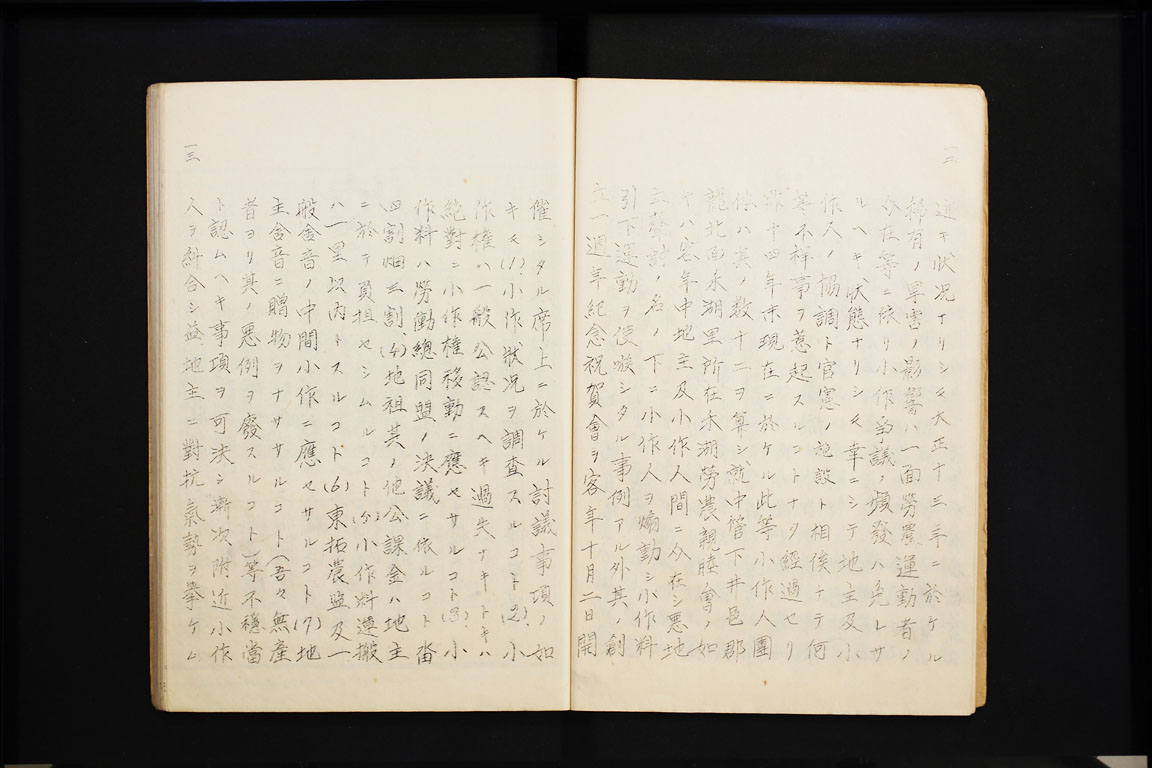 一二
ヘキ状況ナリシモ大正十三年ニ於ケル
稀有ノ旱害ノ影響ハ一面勞農運動者ノ
介在等ニ依リ小作爭議ノ頻發ハ免レサ
ルヘキ狀態ナリシモ幸ニシテ地主及小
作人ノ協調ト官憲ノ施設ト相俟テ何
等不祥事ヲ惹起スルコトナク經過セリ
昨十四年末現在ニ於ケル此等小作人團
体ハ其ノ数十二ヲ算シ就中管下井邑郡
龍北面禾湖里所在禾湖勞農親睦會ノ如
キハ客年中地主及小作人間ニ介在シ悪地
主聲討ノ名ノ下ニ小作人ヲ煽動シ小作料
引下運動ヲ使嗾シタル事例アル外其ノ創
立一週年紀念祝賀會ヲ客年十月二日開
一三
催シタル席上ニ於ケル討議事項ノ如
キモ(1)小作狀况ヲ調査スルコト(2)小
作權ハ一般公認スヘキ過失ナキトキハ
絶對ニ小作權移動ニ應セサルコト(3)小
作料ハ勞働總同盟ノ決議ニ依ルコト畓
四割畑三割(4)地租其ノ他公課金ハ地主
ニ於テ負担セシムルコト(5)小作料運搬
ハ一里以内トスルコト(6)東拓農監及一
般舍音ノ中間小作ニ應セサルコト(7)地
主舍音ニ贈物ヲナササルコト(吾々無產
者ヨリ其ノ悪例ヲ廢スルコト)等不穩當
ト認ムヘキ事項ヲ可決シ漸次附近小作
人ヲ糾合シ益地主ニ對抗氣勢ヲ擧ケム